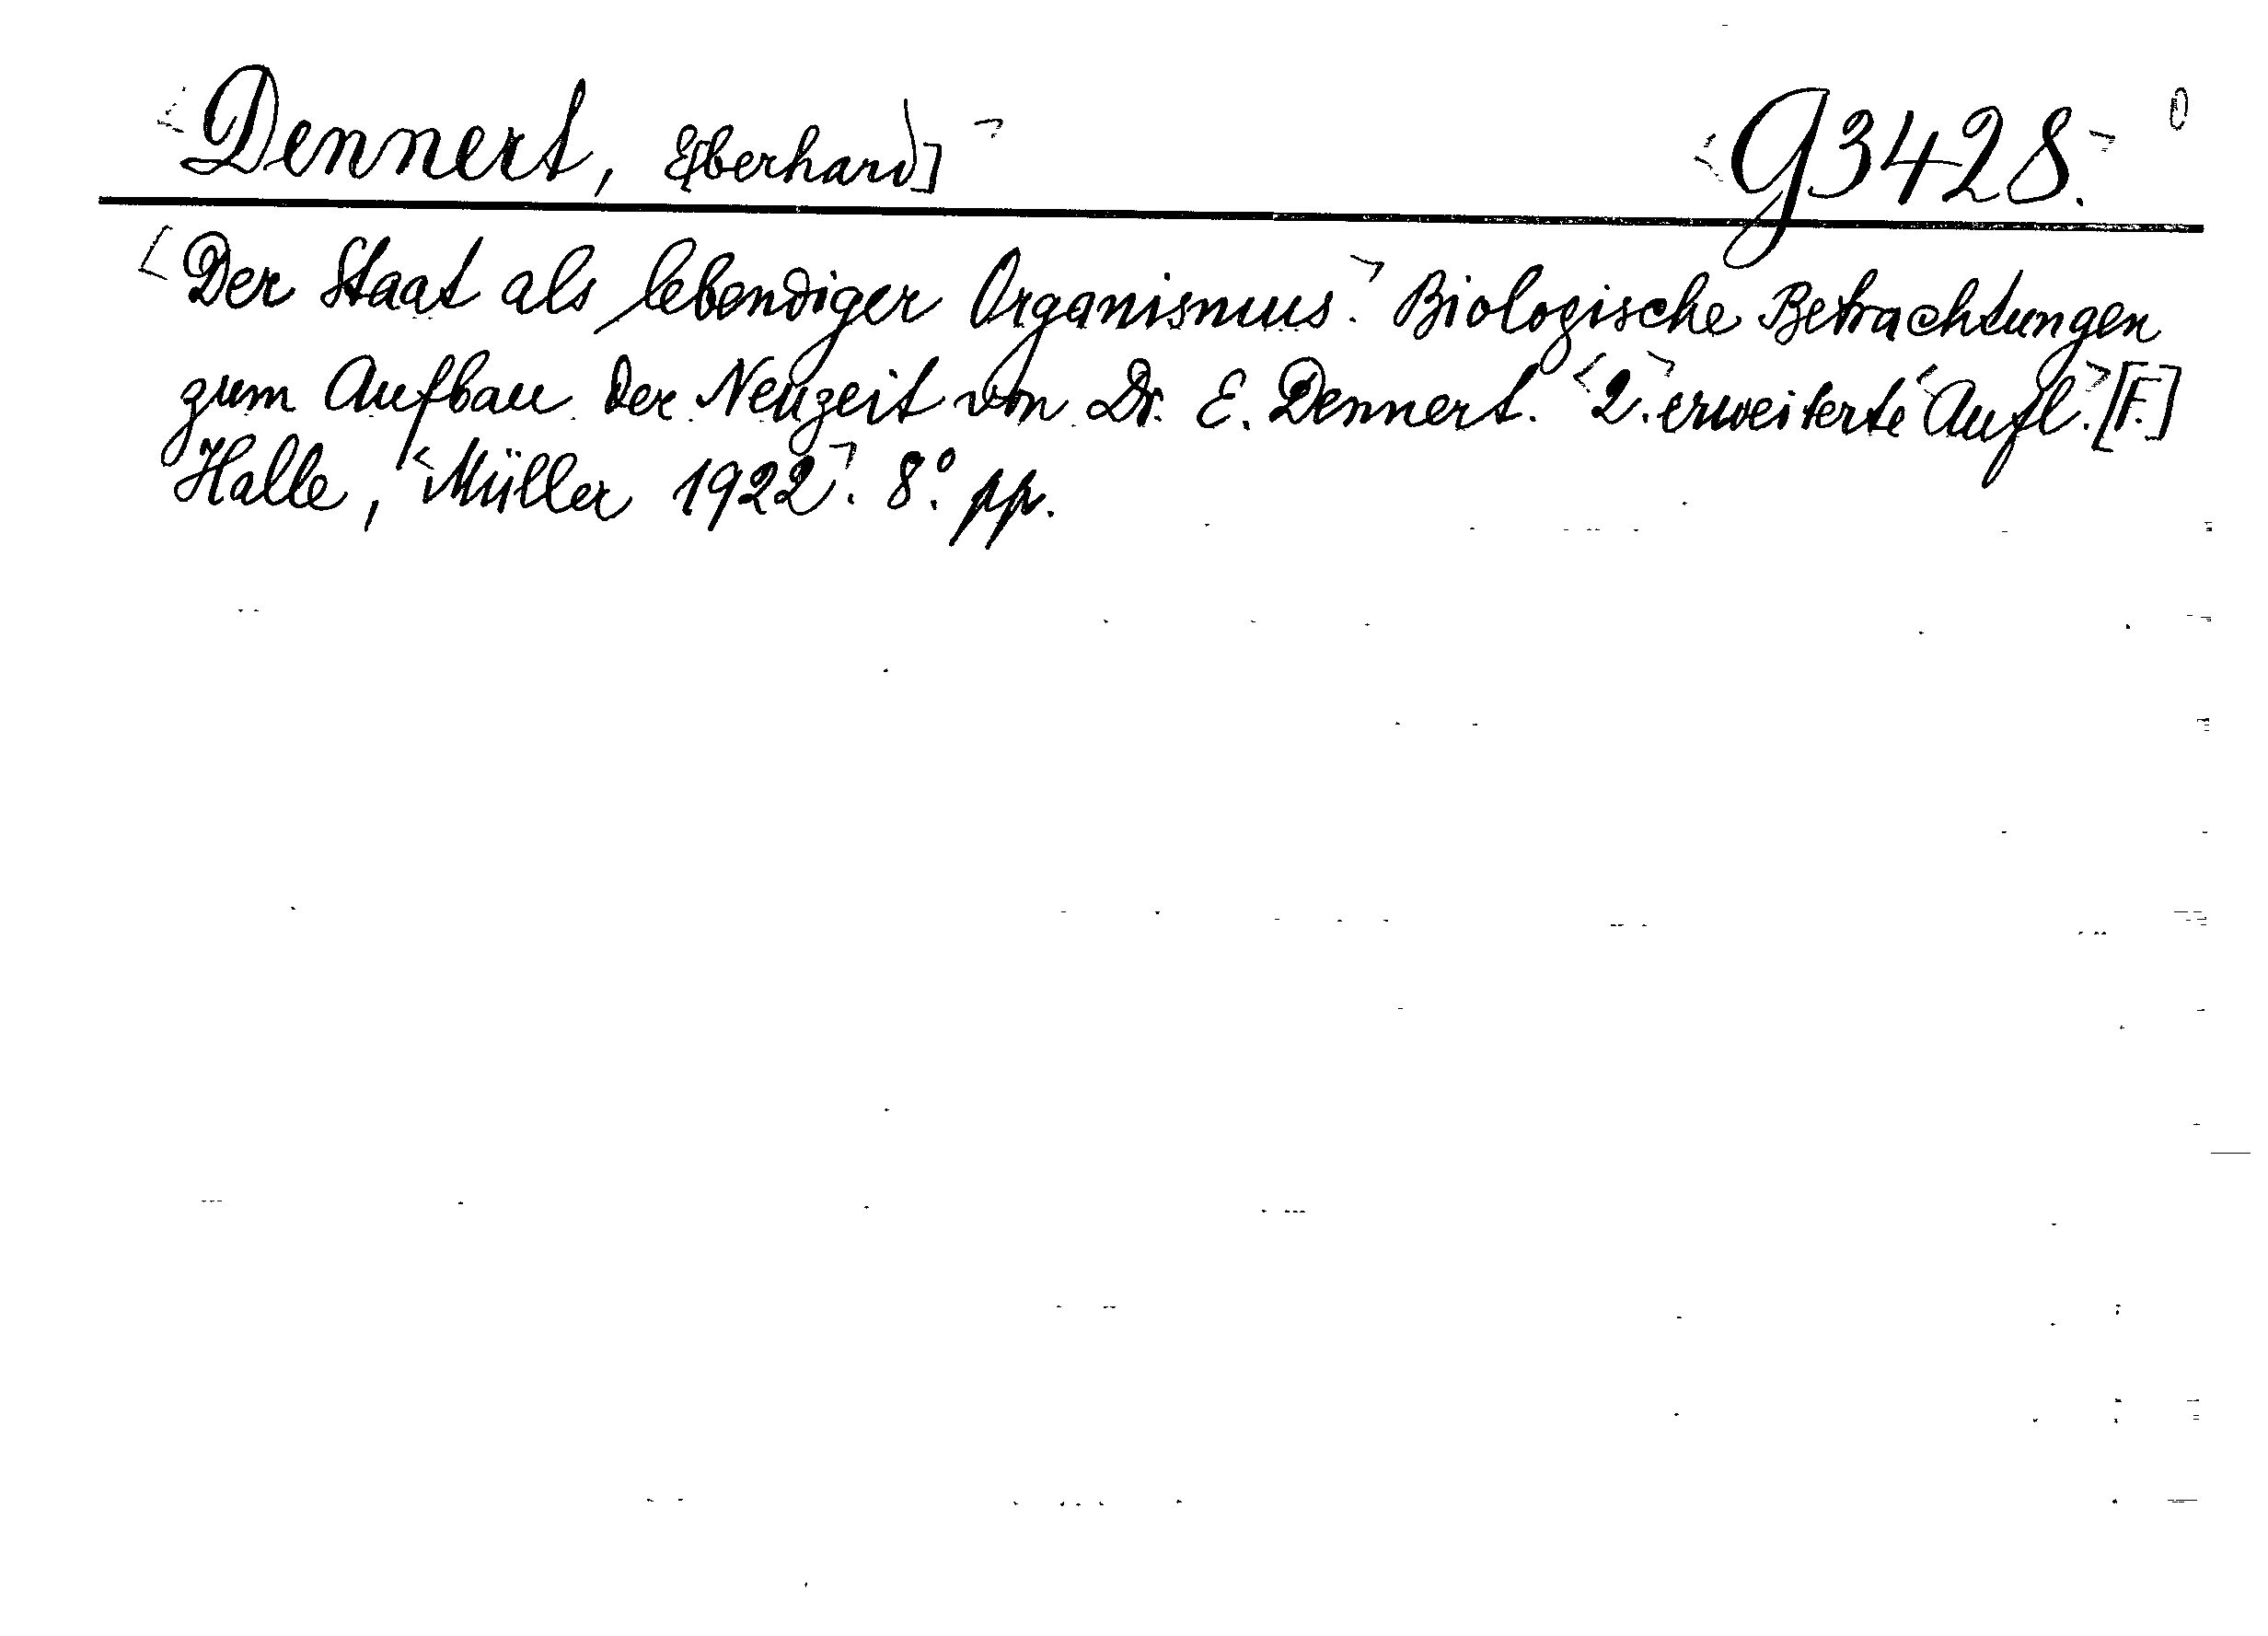 Dennert, E[berhard] G3428.
Der Staat als lebendiger Organismus. Biologische Betrachtungen
zum Aufbau der Neuzeit von Dr. E. Dennert. 2. erweiterte Aufl. [F.]
Halle, Müller 1922. 8°. pp.